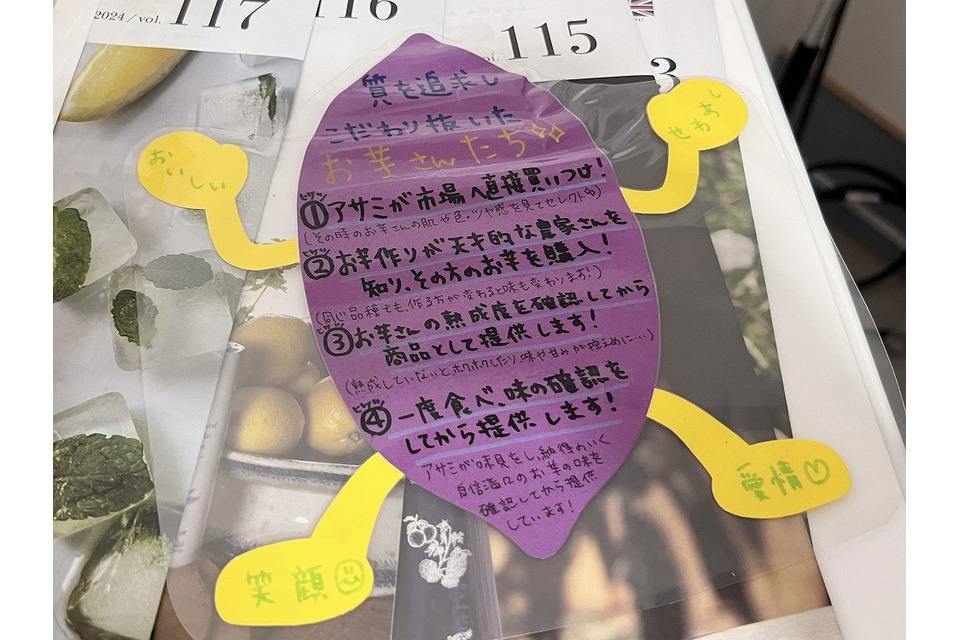 2024/vol. 117
116
vol. 115
3
質を追求し
こだわり抜いた
お芋さんたち
ヒケツ
①アサミが市場へ直接買いつけ!
(その時のお芋さんの肌や色・ツヤ感を見てセレクト)
ヒケツ
②お芋作りが天才的な農家さんを
知り、その方のお芋を購入!
(同じ品種でも、作る方が変わると味も変わります!)
ヒケツ
③お芋さんの熟成度を確認してから
商品として提供します!
(熟成していないとホクホクしたり、味や甘みが控えめに…)
ヒケツ
④一度食べ、味の確認を
してから提供します!
アサミが味見をし、納得のいく
自信満々のお芋の味を
確認してから提供
しています!
おいしい
しあわせ
笑顔
愛情♡